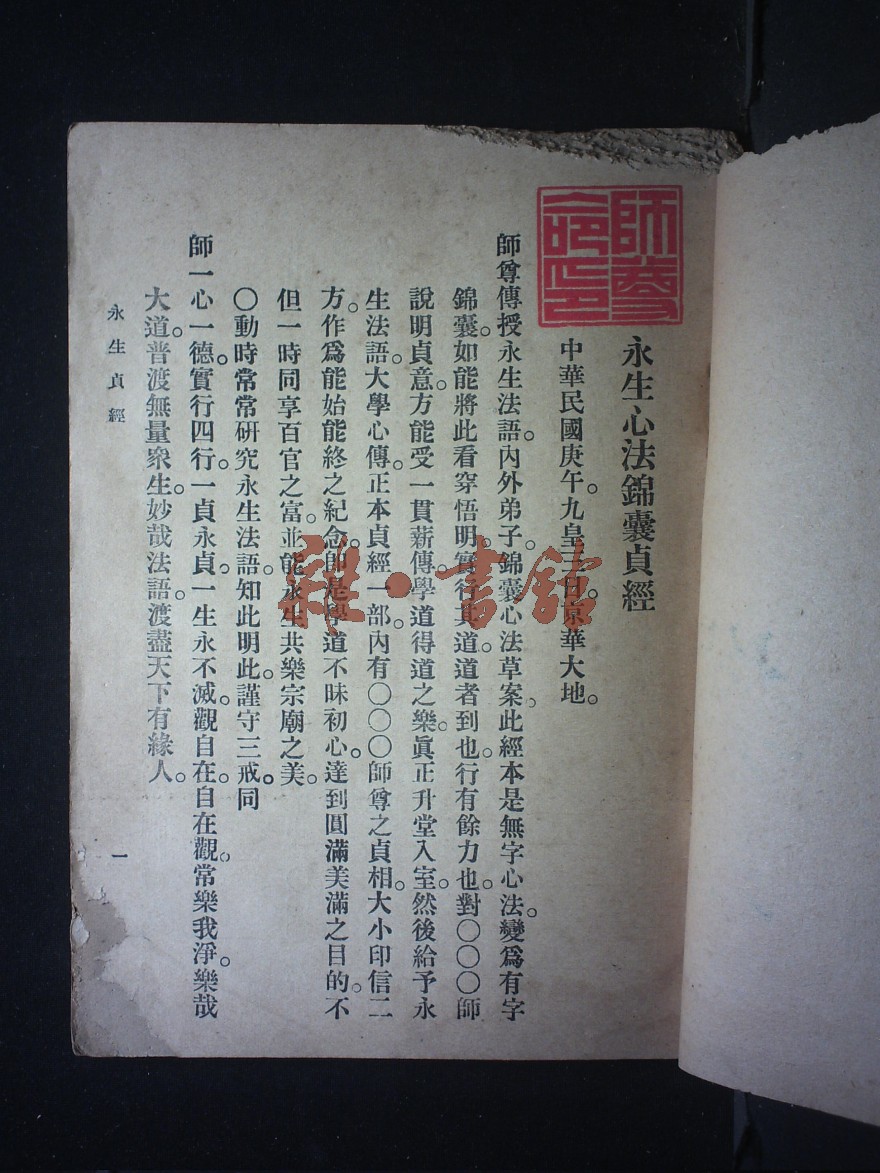 永生心法錦囊貞經
中華民國庚午。九皇三日。京華大地。
師尊傳授永生法語。內外弟子。錦囊心法草案。此經本是無字心法。變爲有字
錦囊。如能將此看穿悟明。實行其道。道者到也。行有餘力也。對〇〇〇師
說明貞意。方能受一貫薪傳。學道得道之樂。眞正升堂入室。然後給予永
生法語。大學心傳。正本貞經一部。內有〇〇〇師尊之貞相。大小印信二
方。作爲能始能終之紀念。卽是學道不昧初心。達到圓滿美滿之目的。不
但一時同享百官之富。並能永生共樂宗廟之美。
〇動時常常研究永生法語。知此明此。謹守三戒。同
師一心一德。實行四行。一貞永貞。一生永不滅。觀自在。自在觀。常樂我淨。樂哉
大道。普渡無量衆生。妙哉法語。渡盡天下有緣人。
永生貞經
一
雜·書館